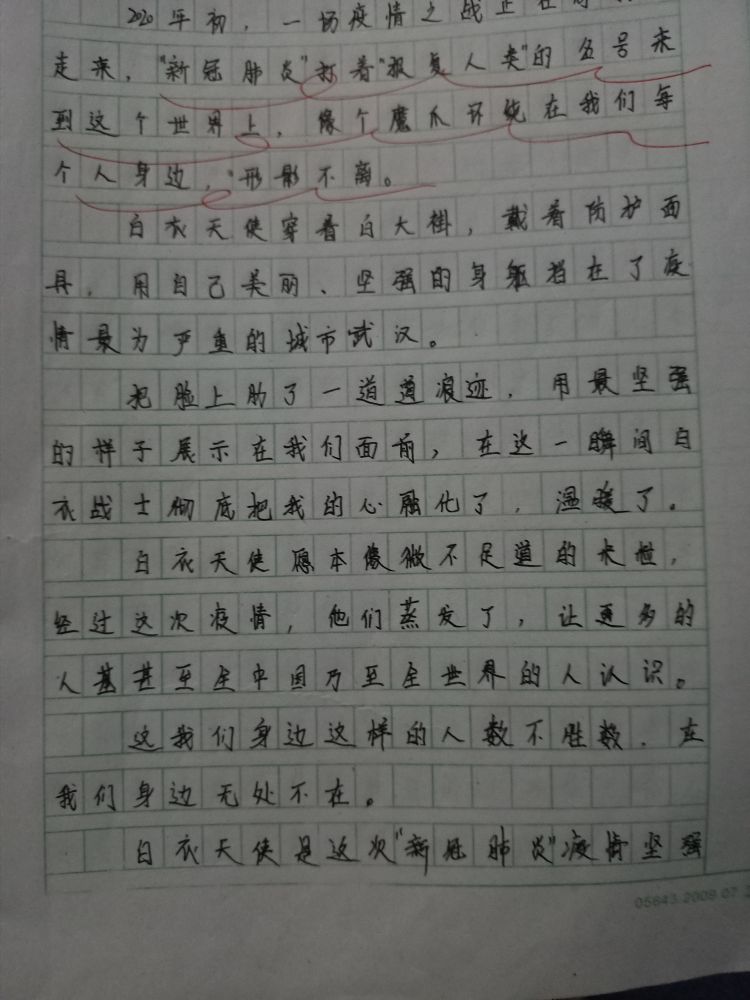 2020年初，一场疫情之战正在
走来，"新冠肺炎"打着"报复人类"的名号来
到这个世界上，像个魔爪环绕在我们每
个人身边，形影不离。
白衣天使穿着白大褂，戴着防护面
具，用自己美丽、坚强的身躯挡在了疫
情最为严重的城市武汉。
把脸上勒了一道道浪迹，用最坚强
的样子展示在我们面前，在这一瞬间白
衣战士彻底把我的心融化了，温暖了。
白衣天使原本像微不足道的水粒，
经过这次疫情，他们蒸发了，让更多的
人甚甚至全中国乃至全世界的人认识。
这我们身边这样的人数不胜数，在
我们身边无处不在。
白衣天使是这次"新冠肺炎"疫情坚强
05643.2009.07.